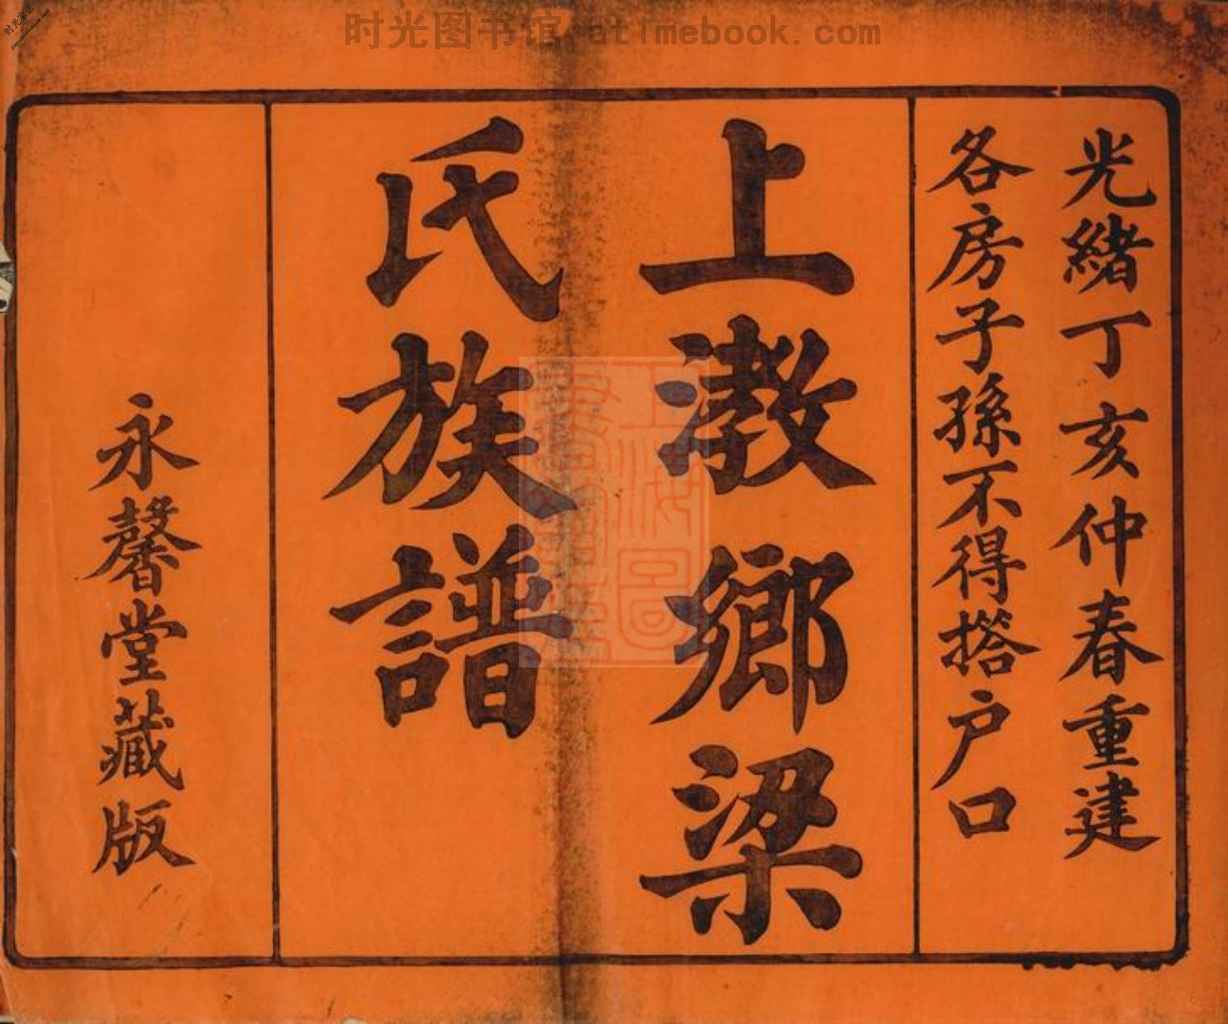 时光图书馆 atimebook.com
光緒丁亥仲春重建
各房子孫不得搭户口
上漖鄉梁
氏族譜
永馨堂藏版